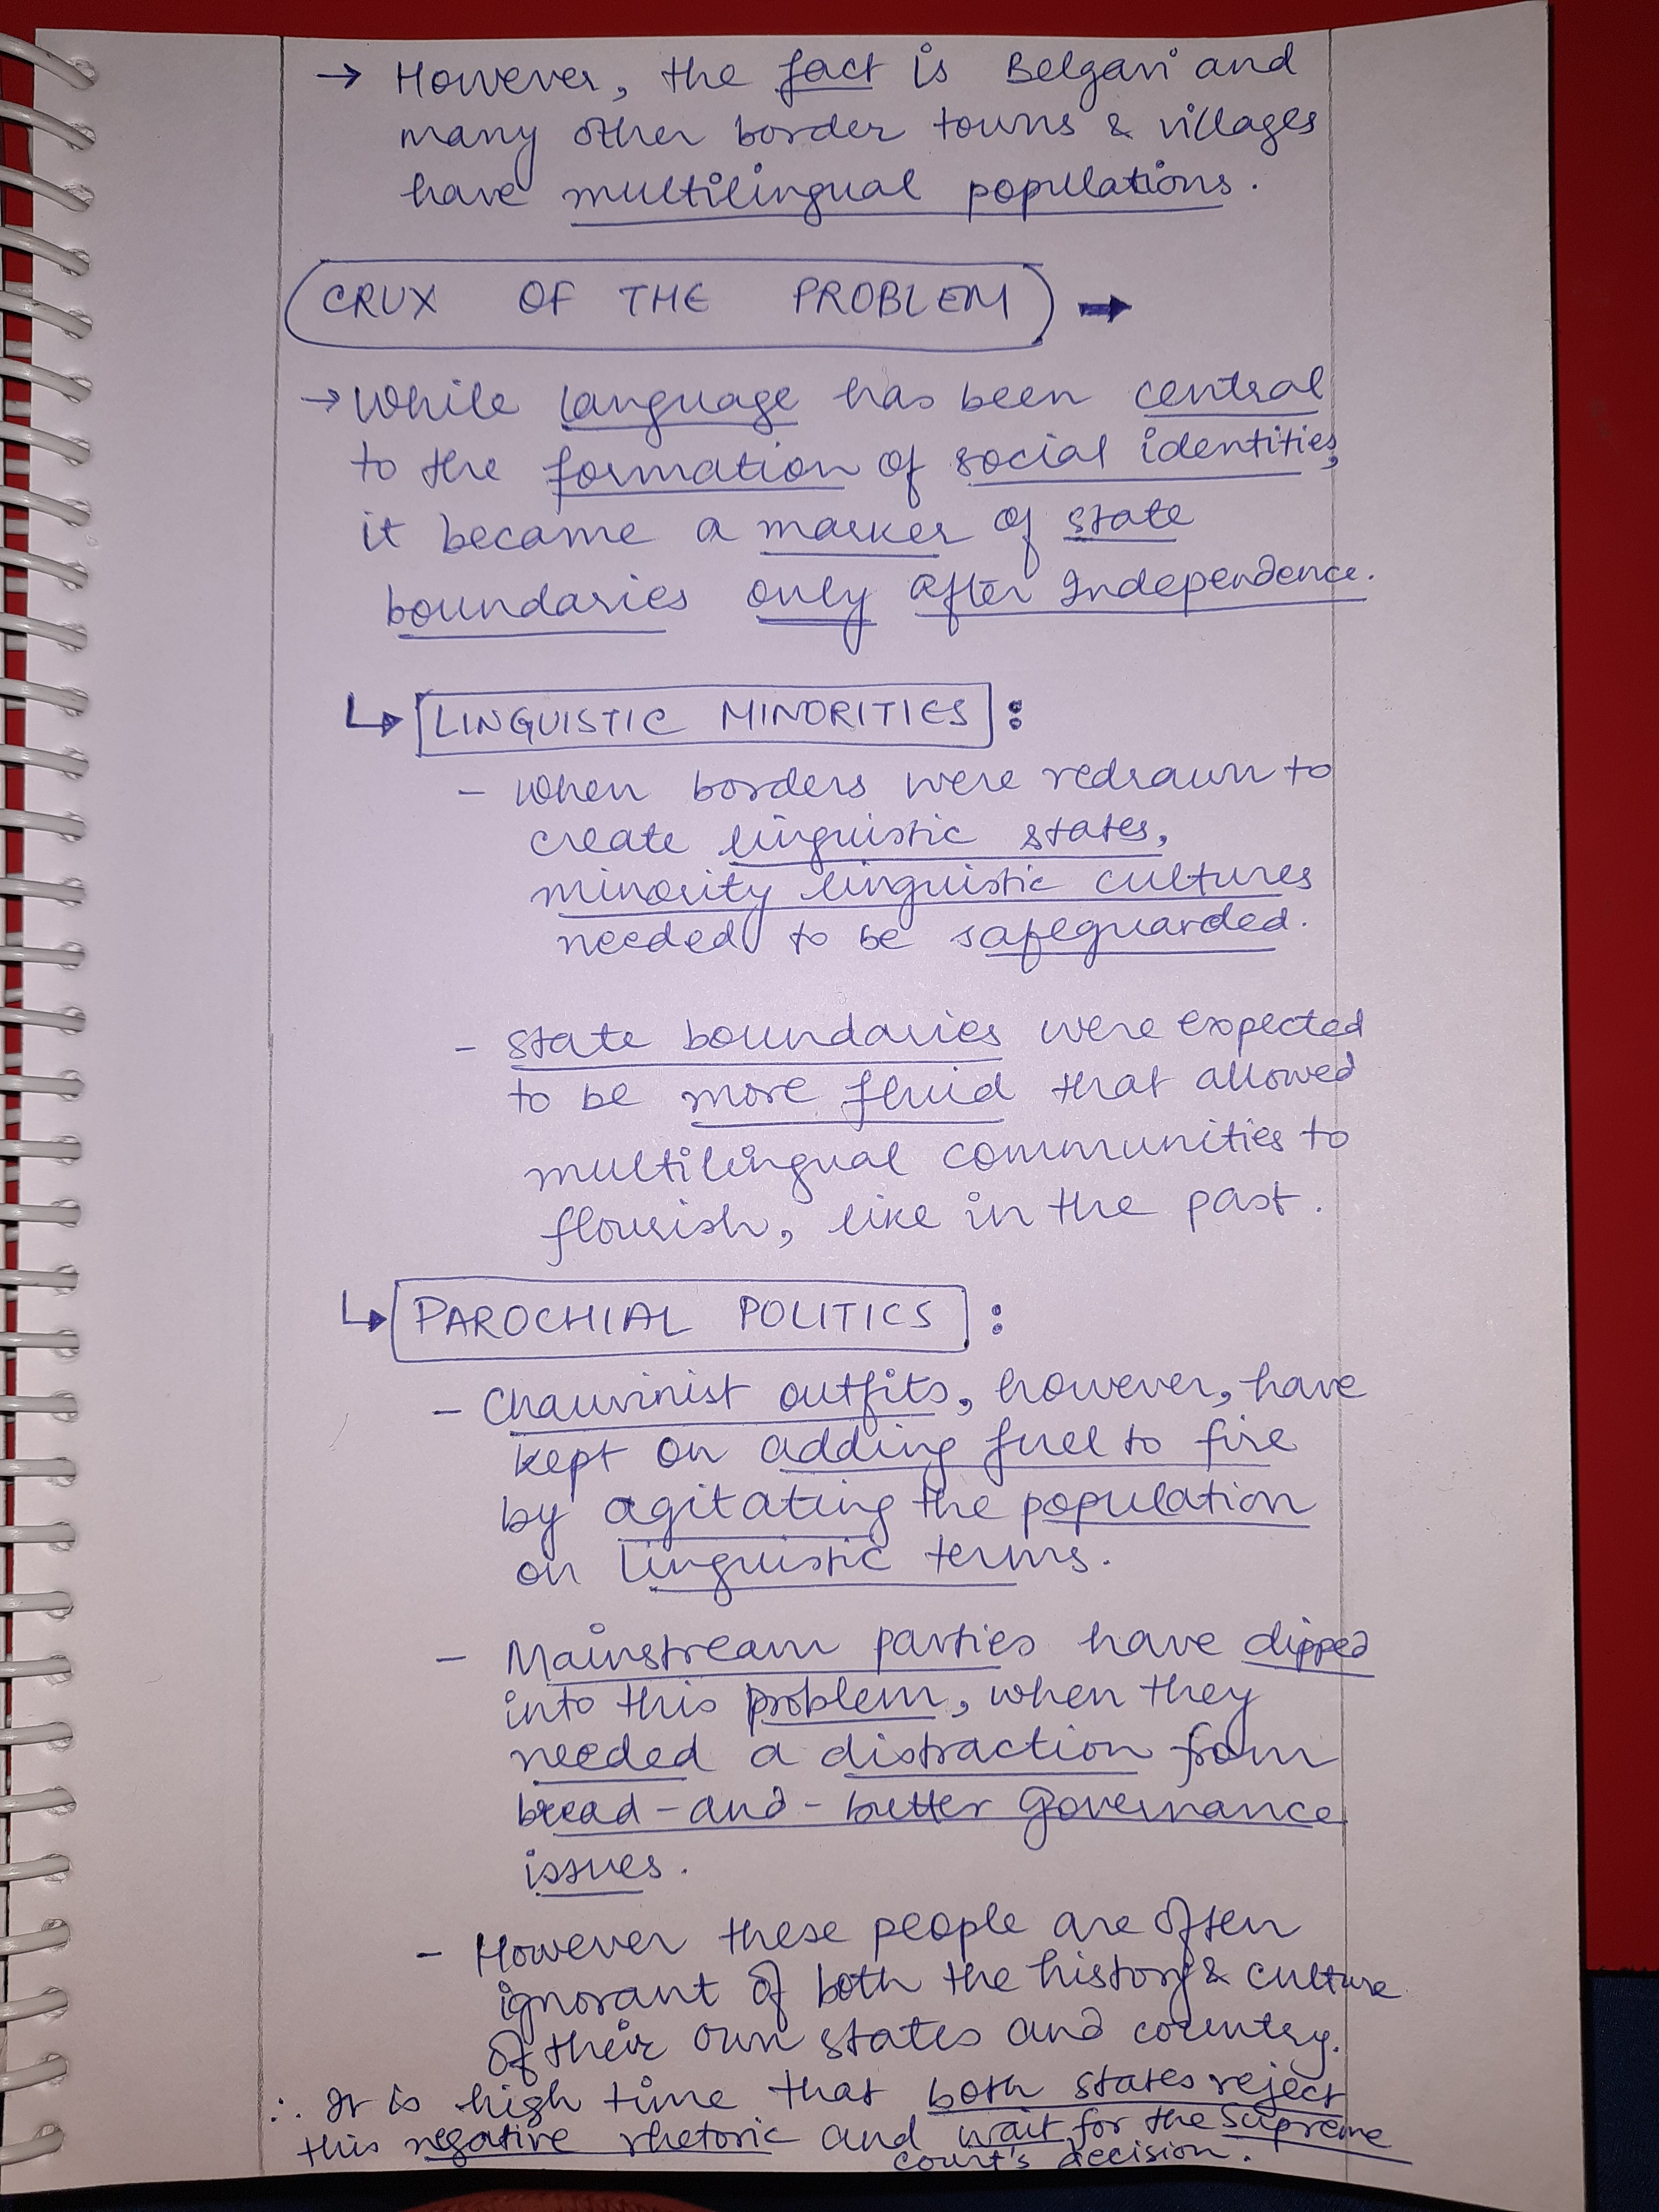 → However, the fact is Belgavi and
many other border towns & villages
have multilingual populations.
CRUX OF THE PROBLEM →
→ While language has been central
to the formation of social identities,
it became a marker of state
boundaries only after Independence.
↳ LINGUISTIC MINORITIES :
- When borders were redrawn to
create linguistic states,
minority linguistic cultures
needed to be safeguarded.
- State boundaries were expected
to be more fluid that allowed
multilingual communities to
flourish, like in the past.
↳ PAROCHIAL POLITICS :
- Chauvinist outfits, however, have
kept on adding fuel to fire
by agitating the population
on linguistic terms.
- Mainstream parties have dipped
into this problem, when they
needed a distraction from
bread-and-butter governance
issues.
- However these people are often
ignorant of both the history & culture
of their own states and country.
∴ It is high time that both states reject
this negative rhetoric and wait for the Supreme
court's decision.